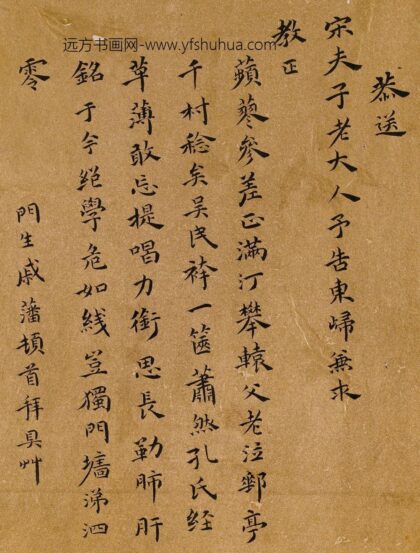 远方书画网-www.yfshuhua.com
恭送
宋夫子老大人予告東歸兼求
教正
蘋蓼參差正滿汀攀轅父老泣郵亭
千村稔矣吴民袴一篋蕭然孔氏経
草薄敢忘提唱力銜恩長勒肺肝
銘于今絕學危如綫豈獨門墻涕泗
零
門生戚藩頓首拜具艸